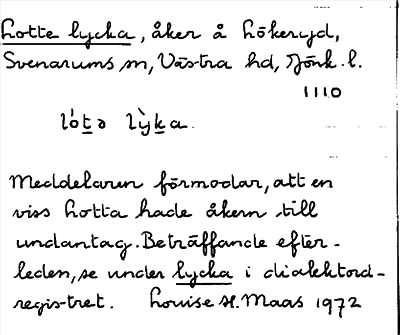 Lotte lycka, åker å Hökeryd,
Svenarums sn, Västra hd, Jönk. l.
1110
lòtə lỳka.
Meddelaren förmodar, att en
viss Lotta hade åkern till
undantag. Beträffande efter-
leden, se under lycka i dialektord-
registret. Louise H. Maas 1972